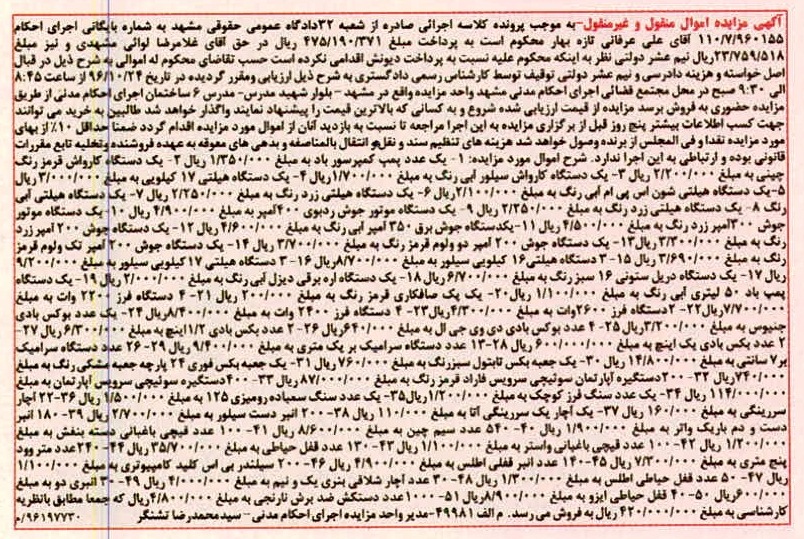 آگهی مزایده اموال منقول و غیرمنقول-به موجب پرونده کلاسه اجرائی صادره از شعبه ۳۲دادگاه عمومی حقوقی مشهد به شماره بایگانی اجرای احکام
۱۱۰/۷/۹۶۰۱۵۵ آقای علی عرفانی تازه بهار محکوم است به پرداخت مبلغ ۴۷۵/۱۹۰/۳۷۱ ریال در حق آقای غلامرضا لوائی مشهدی و نیز مبلغ
۲۳/۷۵۹/۵۱۸ریال نیم عشر دولتی نظر به اینکه محکوم علیه نسبت به پرداخت دیونش اقدامی نکرده است حسب تقاضای محکوم له اموالی به شرح ذیل در قبال
اصل خواسته و هزینه دادرسی و نیم عشر دولتی توقیف توسط کارشناس رسمی دادگستری به شرح ذیل ارزیابی ومقرر گردیده در تاریخ ۹۶/۱۰/۲۴ از ساعت ۸:۴۵
الی ۹:۳۰ صبح در محل مجتمع قضائی اجرای احکام مدنی مشهد واحد مزایده واقع در مشهد - بلوار شهید مدرس- مدرس ۶ ساختمان اجرای احکام مدنی از طریق
مزایده حضوری به فروش برسد مزایده از قیمت ارزیابی شده شروع و به کسانی که بالاترین قیمت را پیشنهاد نمایند واگذار خواهد شد طالبین به خرید می توانند
جهت کسب اطلاعات بیشتر پنج روز قبل از برگزاری مزایده به این اجرا مراجعه تا نسبت به بازدید آنان از اموال مورد مزایده اقدام گردد ضمنا حداقل ۱۰٪ از بهای
مورد مزایده نقدا و فی المجلس از برنده وصول خواهد شد هزینه های تنظیم سند و نقل و انتقال بالمناصفه و بدهی های معوقه به عهده فروشنده وتخلیه تابع مقررات
قانونی بوده و ارتباطی به این اجرا ندارد. شرح اموال مورد مزایده: ۱- یک عدد پمپ کمپرسور باد به مبلغ ۱/۳۵۰/۰۰۰ ریال ۲- یک دستگاه کارواش قرمز رنگ
چینی به مبلغ ۲/۲۰۰/۰۰۰ ریال ۳- یک دستگاه کارواش سیلور آبی رنگ به مبلغ ۱/۷۰۰/۰۰۰ریال ۴- یک دستگاه هیلتی ۱۷ کیلویی به مبلغ ۳/۰۰۰/۰۰۰ ریال
۵-یک دستگاه هیلتی شون اس پی ام آبی رنگ به مبلغ ۲/۱۰۰/۰۰۰ریال ۶- یک دستگاه هیلتی زرد رنگ به مبلغ ۲/۲۵۰/۰۰۰ ریال ۷- یک دستگاه هیلتی آبی
رنگ ۸- یک دستگاه هیلتی زرد رنگ به مبلغ ۲/۲۵۰/۰۰۰ ریال ۹- یک دستگاه موتور جوش ردبوی ۴۰۰آمپر به مبلغ ۴/۹۰۰/۰۰۰ ریال ۱۰- یک دستگاه موتور
جوش ۳۰۰آمپر زرد رنگ به مبلغ ۴/۵۰۰/۰۰۰ ریال ۱۱-یکدستگاه جوش برق ۲۵۰ آمپر آبی رنگ به مبلغ ۴/۶۰۰/۰۰۰ ریال ۱۲- یک دستگاه جوش ۲۰۰ آمپر زرد
رنگ به مبلغ ۳/۳۰۰/۰۰۰ ریال۱۳- یک دستگاه جوش ۲۰۰ آمپر دو ولوم قرمز رنگ به مبلغ ۳/۷۰۰/۰۰۰ ریال ۱۴- یک دستگاه جوش ۲۰۰ آمپر تک ولوم قرمز
رنگ به مبلغ ۳/۶۹۰/۰۰۰ ریال ۱۵- ۳ دستگاه هیلتی ۱۶ کیلویی سیلور به مبلغ ۸/۷۰۰/۰۰۰ریال ۱۶- ۳ دستگاه هیلتی ۱۷کیلویی سیلور به مبلغ ۹/۲۰۰/۰۰۰
ریال ۱۷- یک دستگاه دریل ستونی ۱۶ سبز رنگ به مبلغ ۶/۷۰۰/۰۰۰ ریال ۱۸- یک دستگاه اره برقی دیزل آبی رنگ به مبلغ ۲/۰۰۰/۰۰۰ ریال ۱۹- یک دستگاه
پمپ باد ۵۰ لیتری آبی رنگ به مبلغ ۱/۱۰۰/۰۰۰ ریال۲۰- یک پک صافکاری قرمز رنگ به مبلغ ۲۰۰/۰۰۰ ریال ۲۱- ۴ دستگاه فرز ۲۲۰۰ وات به مبلغ
۷/۷۰۰/۰۰۰ریال۲۲- ۲دستگاه فرز ۲۶۰۰وات به مبلغ ۴/۳۰۰/۰۰۰ریال ۲۳- ۴ دستگاه فرز ۲۴۰۰ وات به مبلغ ۸/۴۰۰/۰۰۰ریال ۲۴- یک عدد بوکس بادی
جنیوس به مبلغ ۳/۲۰۰/۰۰۰ریال ۲۵- ۴ عدد بوکس بادی دی وی جی ال به مبلغ ۶۴۰/۰۰۰ریال ۲۶- ۲ عدد بکس بادی ۱/۲اینچ به مبلغ ۶/۳۰۰/۰۰۰ ریال ۲۷-
۲ عدد بکس بادی یک اینچ به مبلغ ۶۰۰/۰۰۰/۰۰۰ ریال ۲۸-۱۳ عدد دستگاه سرامیک بر یک متری به مبلغ ۹/۴۰۰/۰۰۰ ریال ۲۹-۲۶ عدد دستگاه سرامیک
بر۷ سانتی به مبلغ ۱۴/۸۰۰/۰۰۰ ریال ۳۰- یک جعبه بکس تابتول سبزرنگ به مبلغ ۷۶۰/۰۰۰ ریال ۳۱- یک جعبه بکس فوری ۲۴ پارچه جعبه مشکی رنگ به مبلغ
۷۴۰/۰۰۰ریال ۳۲-۲۰۰دستگیره آپارتمان سوئیچی سرویس فاراد قرمز رنگ به مبلغ ۸۷/۰۰۰/۰۰۰ ریال ۳۳-۴۰۰دستگیره سوئیچی سرویس آپارتمان به مبلغ
۱۱۴/۰۰۰/۰۰۰ ریال ۳۴- یک عدد سنگ فرز کوچک به مبلغ ۱/۲۰۰/۰۰۰ ریال۳۵- یک عدد سنگ سمباده رومیزی ۱۲۵ به مبلغ ۱/۵۰۰/۰۰۰ ریال ۳۶-۲۲ آچار
سررینگی به مبلغ ۱۶۰/۰۰۰ ریال ۳۷- یک آچار یک سررینگی آتا به مبلغ ۱۱۰/۰۰۰ ریال ۳۸-۲۰۰ انبر دست سیلور به مبلغ ۲/۷۰۰/۰۰۰ ریال ۳۹-۱۸۰ انبر
دست و دم باریک واتر به مبلغ ۱/۹۰۰/۰۰۰ ریال ۴۰-۵۴۰ عدد سیم چین به مبلغ ۸/۶۰۰/۰۰۰ ریال ۴۱-۱۰۰ عدد قیچی باغبانی دسته بنفش به مبلغ
۱/۲۰۰/۰۰۰ ریال ۴۲-۱۰۰ عدد قیچی باغبانی واستر به مبلغ ۱/۱۰۰/۰۰۰ ریال ۴۳-۱۳۰ عدد قفل حیاطی به مبلغ ۳۵/۷۰۰/۰۰۰ ریال ۴۴-۲۴۰عدد متر رود
پنج متری به مبلغ ۷/۳۰۰/۰۰۰ ریال ۴۵-۱۴۰ عدد انبر قفلی اطلس به مبلغ ۴/۹۰۰/۰۰۰ ریال ۴۶-۲۰۰ سیلندر بی اس کلید کامپیوتری به مبلغ ۱/۱۰۰/۰۰۰
ریال ۴۷-۵۰ عدد قفل حیاطی اطلس به مبلغ ۱/۳۰۰/۰۰۰ ریال ۴۸-۳۰ عدد آچار شلاقی بنزی یک و نیم به مبلغ ۴/۰۰۰/۰۰۰ ریال ۴۹-۳۰ انبری دو به مبلغ
۶۰۰/۰۰۰ریال ۵۰-۴۰ قفل حیاطی ایزو به مبلغ ۸/۹۰۰/۰۰۰ریال ۵۱-۱۰۰۰عدد دستکش ضد برش نارنجی به مبلغ ۴/۸۰۰/۰۰۰ریال که جمعا مطابق بانظریه
کارشناسی به مبلغ ۴۲۰/۰۰۰/۰۰۰ ریال به فروش می رسد. م الف ۴۹۹۸۱-مدیر واحد مزایده اجرای احکام مدنی- سیدمحمدرضا تشنگر ۹۶۱۹۷۷۳۰/م